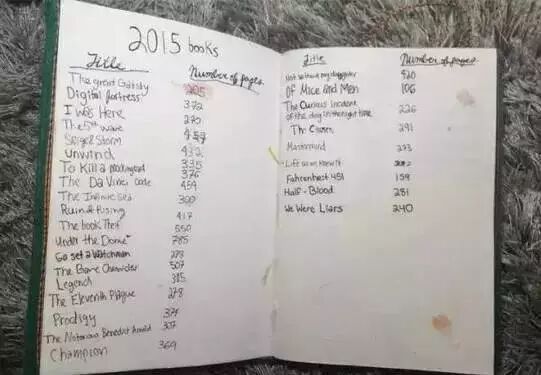 2015 books
Title
Number of pages
The great Gatsby 205
Digital fortress 372
I was Here 270
The 5th wave 457
Seige & Storm 432
Unwind 335
To Kill a Mockingbird 376
The Da Vinci Code 454
The Infinite Sea 300
Ruin & Rising 417
The book Thief 550
Under the Dome 785
Go set a Watchman 278
The Bone Chronicles 507
Legend 315
The Eleventh Plague 278
Prodigy 371
The Notorious Benedict Arnold 307
Champion 369
Title
Number of pages
Not without my daughter 420
Of Mice and Men 106
The Curious Incident
of the dog in the night time 226
The Chosen 291
Mastermind
Life as we knew it
Fahrenheit 451 159
Half-Blood 281
We Were Liars 240